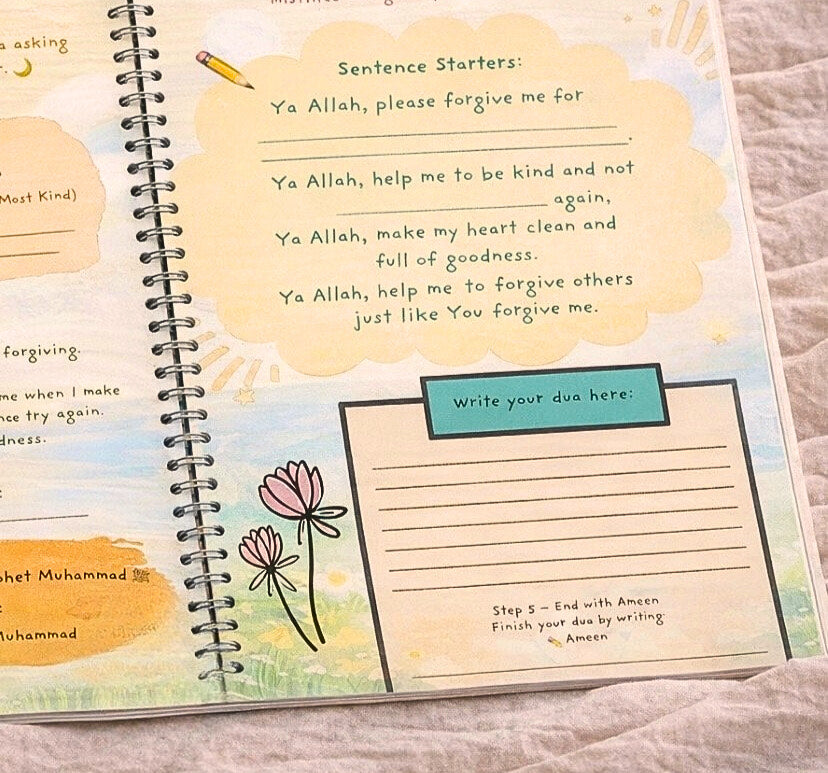 asking
Most Kind)
forgiving.
me when I make
try again.
Muhammad ﷺ
Muhammad
Sentence Starters:
Ya Allah, please forgive me for
.
Ya Allah, help me to be kind and not
again,
Ya Allah, make my heart clean and
full of goodness.
Ya Allah, help me to forgive others
just like You forgive me.
Write your dua here:
Step 5 – End with Ameen
Finish your dua by writing:
Ameen